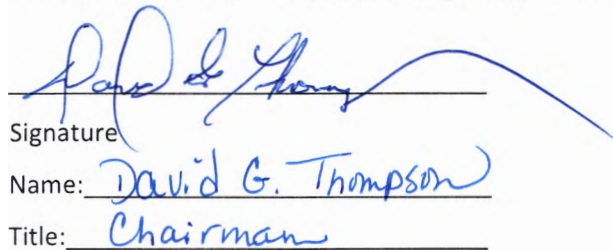 David G Thompson
Signature
Name: David G. Thompson
Title: Chairman